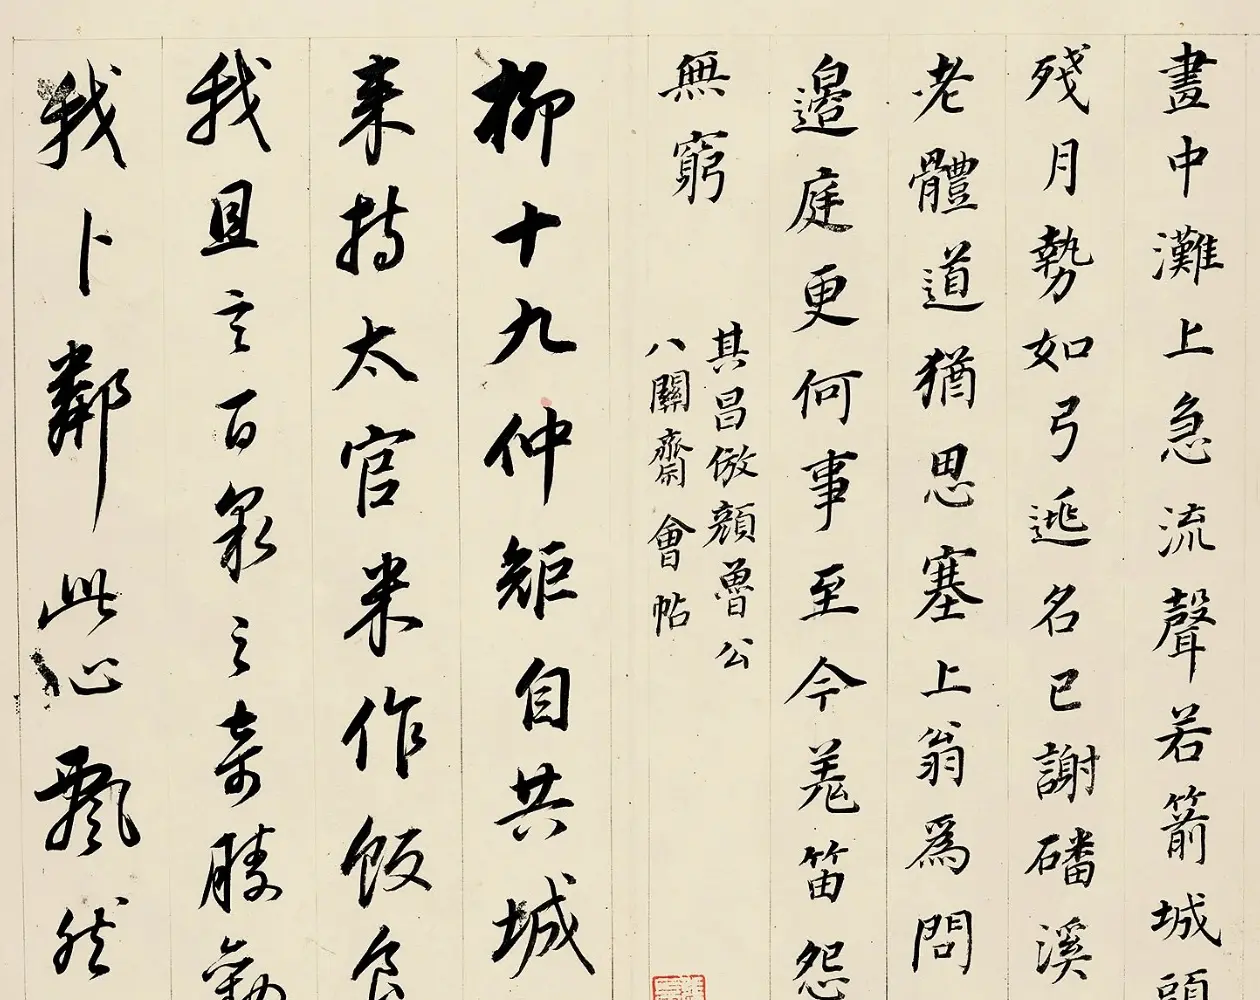 畫中灘上急流聲若箭城頭
殘月勢如弓逃名已謝磻溪
老體道猶思塞上翁為問
邊庭更何事至今羌笛怨
無窮
其昌倣顏魯公
八關齋會帖
柳十九仲矩自共城
來持太官米作飯食
我且言百泉之奇勝勸
我卜鄰此心飄然